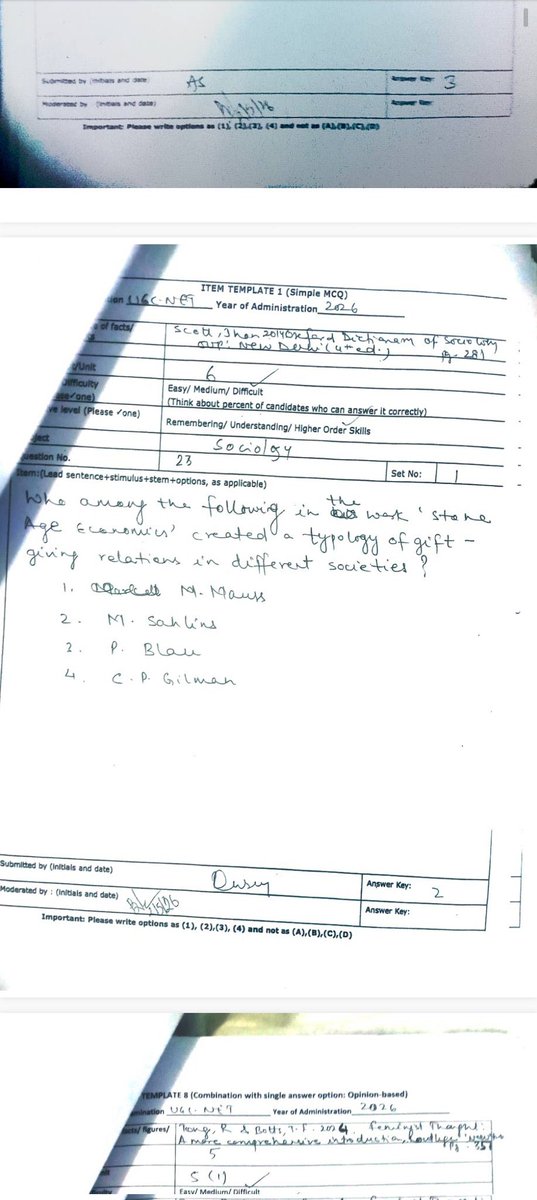 Submitted by (initials and date) AS Answer Key: 3
Moderated by (initials and date) Answer Key:
Important: Please write options as (1), (2),(3), (4) and not as (A),(B),(C),(D)
ITEM TEMPLATE 1 (Simple MCQ)
UGC-NET Year of Administration 2026
of facts/ Scott, Jhon 2014 Oxford Dictionary of Sociology
OUP: New Delhi (4th ed.) Pg. 281
/Unit 6
Difficulty Easy/ Medium/ Difficult
ase✓one) (Think about percent of candidates who can answer it correctly)
ve level (Please ✓one) Remembering/ Understanding/ Higher Order Skills
ject Sociology
uestion No. 23 Set No: 1
Item:(Lead sentence+stimulus+stem+options, as applicable)
Who among the following in the work 'Stone
Age Economics' created a typology of gift -
giving relations in different societies ?
1. M. Mauss
2. M. Sahlins
2. P. Blau
4. C. P. Gilman
Submitted by (initials and date) Answer Key: 2
Moderated by : (initials and date) Answer Key:
Important: Please write options as (1), (2),(3), (4) and not as (A),(B),(C),(D)
TEMPLATE 8 (Combination with single answer option: Opinion-based)
mination UGC-NET Year of Administration 2026
acts/ figures/ Tong, R & Botts, T. F. 2024. Feminist Thought:
A more comprehensive introduction,
5
5 (1)
Easy/ Medium/ Difficult